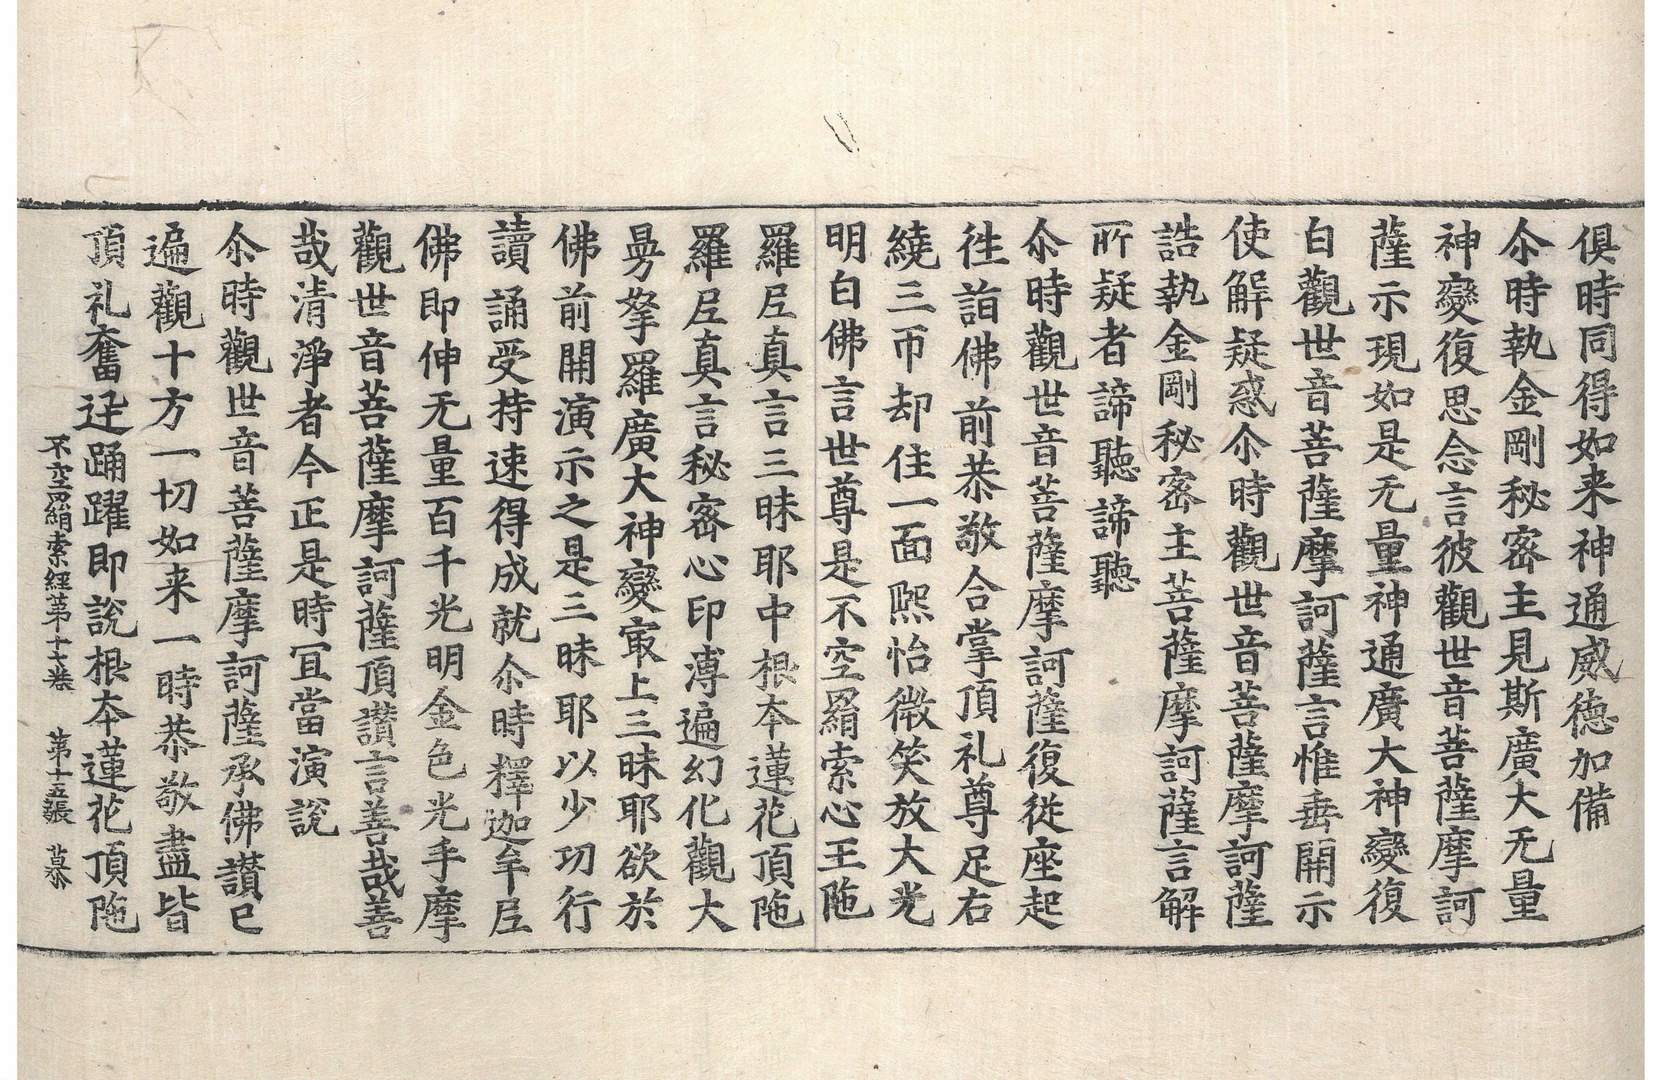 俱時同得如来神通威德加備
尒時執金剛秘密主見斯廣大无量
神變復思念言彼觀世音菩薩摩訶
薩示現如是无量神通廣大神變復
白觀世音菩薩摩訶薩言惟垂開示
使解疑惑尒時觀世音菩薩摩訶薩
誥執金剛秘密主菩薩摩訶薩言解
所疑者諦聽諦聽
尒時觀世音菩薩摩訶薩復從座起
徃詣佛前恭敬合掌頂礼尊足右
繞三帀却住一面熈怡微笑放大光
明白佛言世尊是不空羂索心王陁
羅尼真言三昧耶中根夲蓮花頂陁
羅尼真言秘密心印溥遍幻化觀大
曼拏羅廣大神變㝡上三昧耶欲於
佛前開演示之是三昧耶以少功行
讀誦受持速得成就尒時釋迦牟尼
佛即伸无量百千光明金色光手摩
觀世音菩薩摩訶薩頂讃言善哉善
哉清淨者今正是時冝當演說
尒時觀世音菩薩摩訶薩承佛讃已
遍觀十方一切如来一時恭敬盡皆
頂礼奮迅踊躍即說根夲蓮花頂陁
不空羂索經第十六卷 第十五張 慕